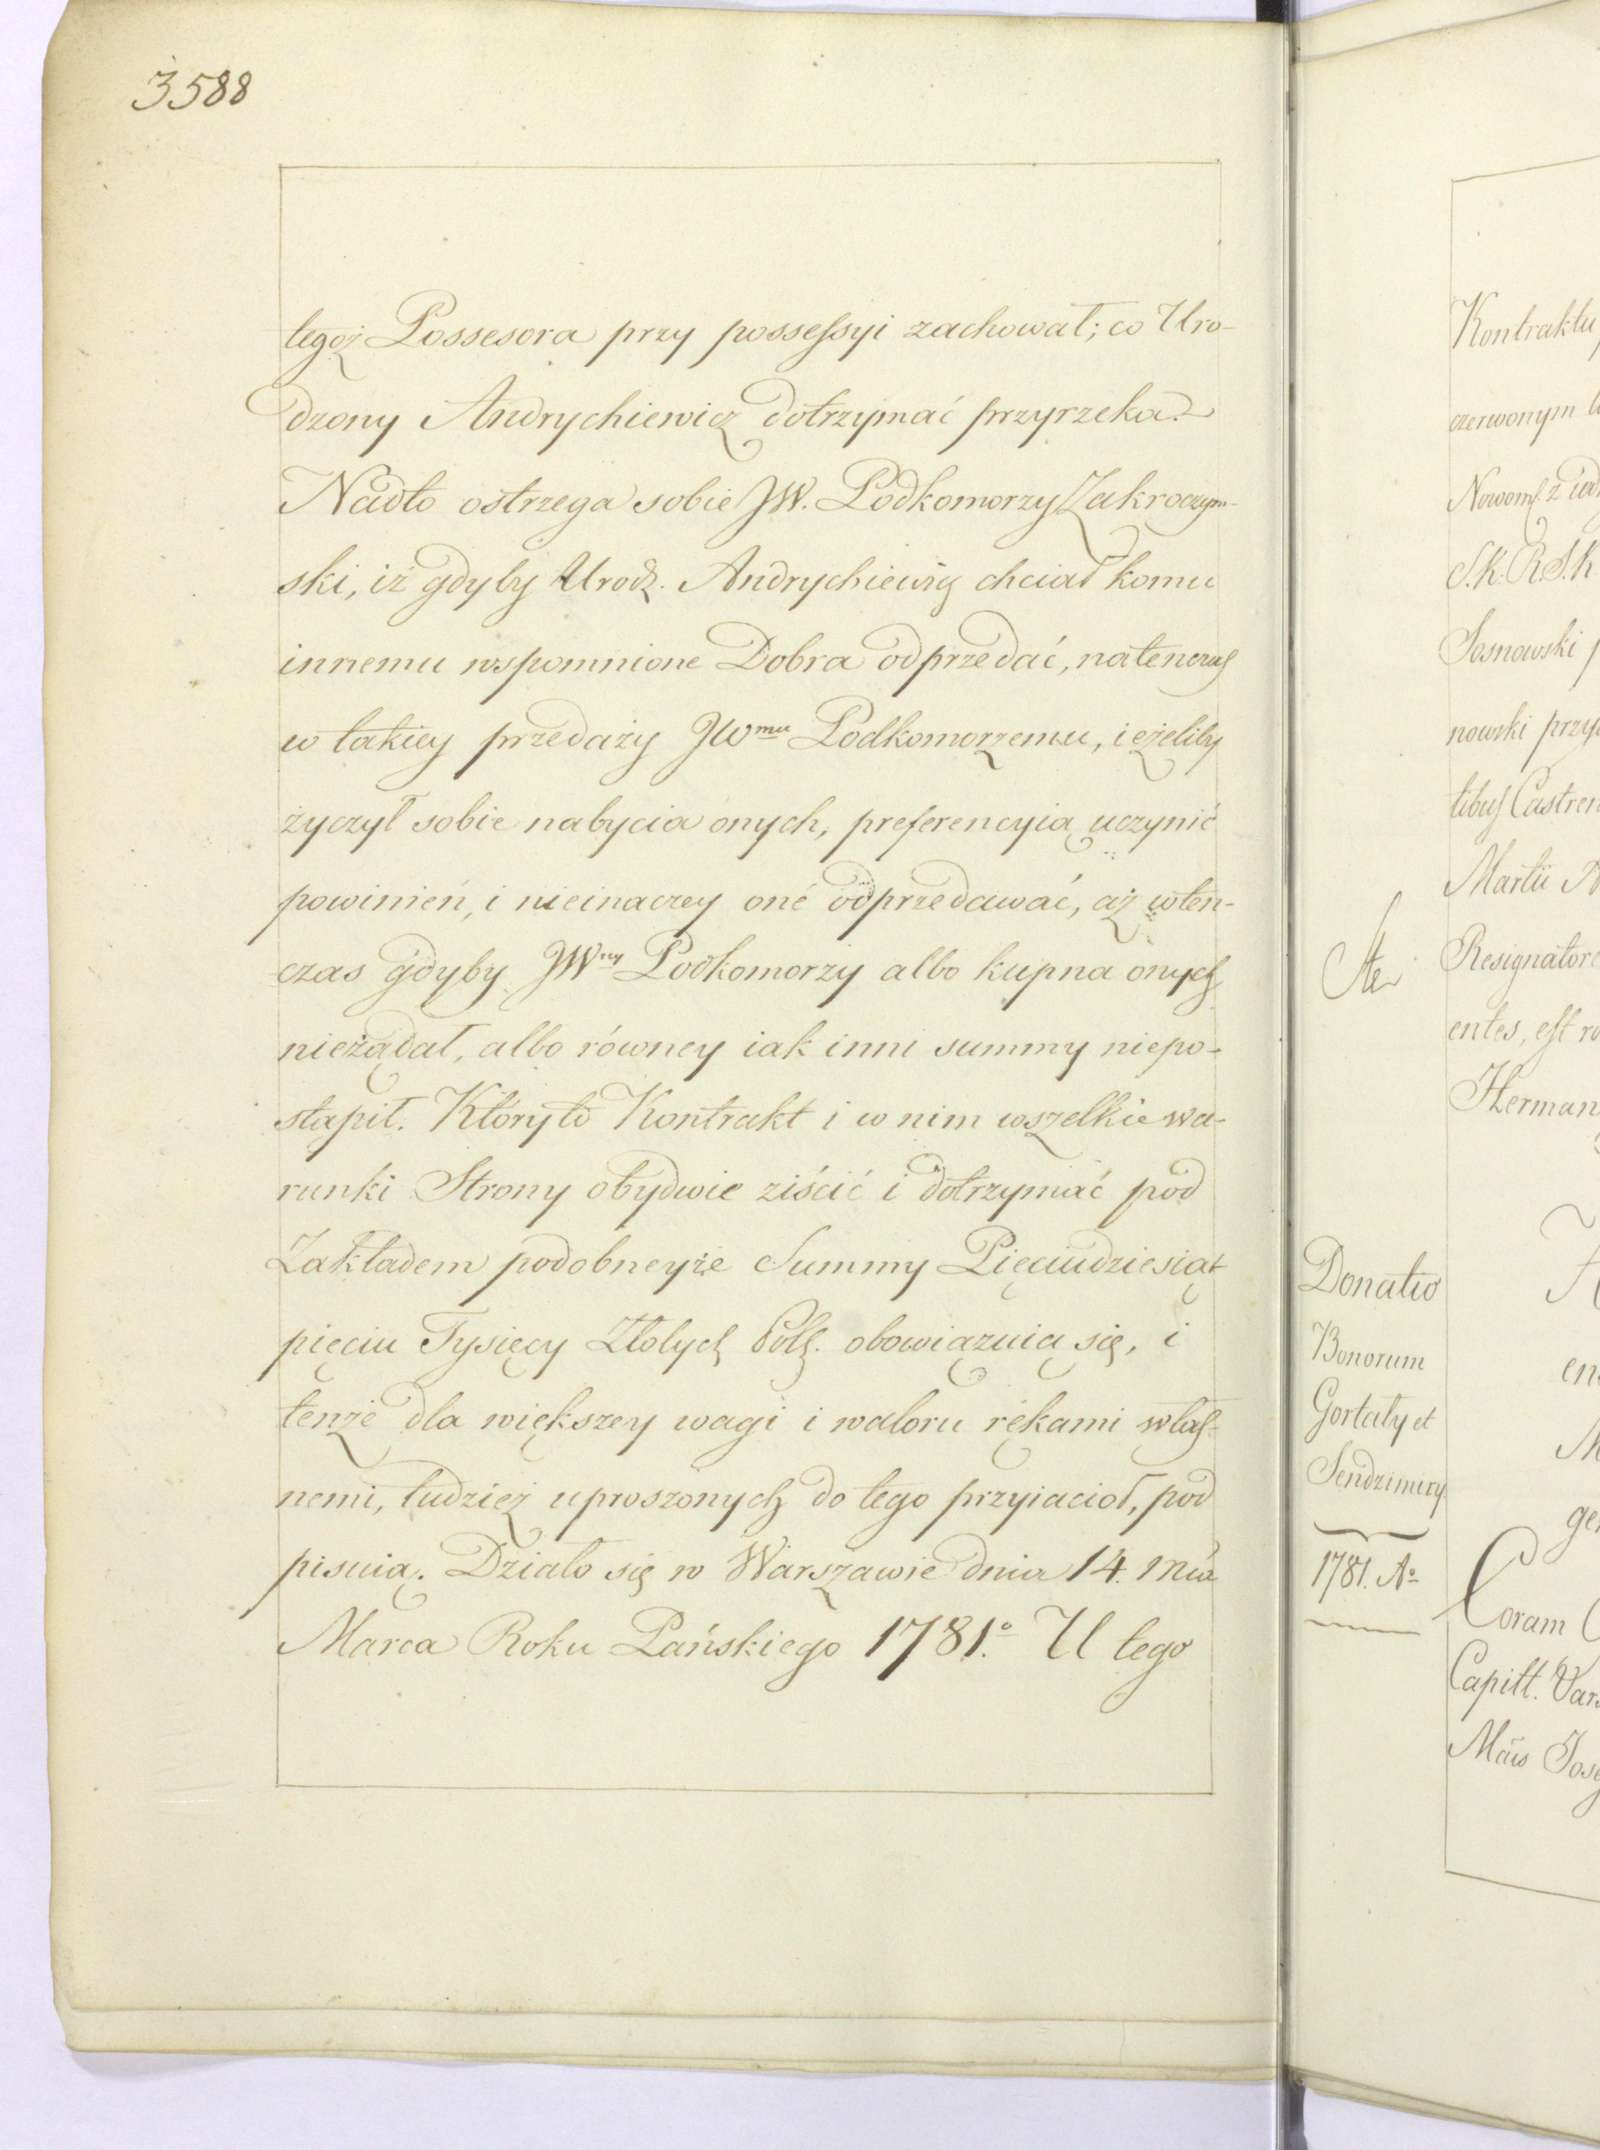 3588
tegoż Possesora przy possessyi zachował; co Uro-
dzony Andrychiewicz dotrzymać przyrzeka.
Nadto ostrzega sobie JW. Podkomorzy Zakroczym-
ski, iż gdyby Urodz. Andrychiewicz chciał komu
innemu wspomnione Dobra odprzedać, natenczas
w takiey przedaży JWmu Podkomorzemu, ieżeliby
życzył sobie nabycia onych, preferencyią uczynić
powinień, i nieinaczey oné odprzedawać, aż wten-
czas gdyby JWny Podkomorzy albo kupna onych
nieżądał, albo równey iak inni summy niepo-
stąpił. Któryto Kontrakt i w nim wszelkie wa-
runki Strony obydwie ziścić i dotrzymać pod
Zakładem podobneyże Summy Pięciudziesiąt
pięciu Tysięcy Złotych Pols. obowiązuią się, i
tenże dla większey wagi i waloru rękami włas-
nemi, tudzież uproszonych do tego przyiaciół, pod
pisuią. Działo się w Warszawie dnia 14. Mca
Marca Roku Pańskiego 1781.o U tego
Kontraktu
czerwonym
S.K.R.S.K.
Sosnowski
nowski
Castren
Martii
Resignatore
entes, est
Herman
Donatio
Bonorum
Gortaty et
Sendzimiry
1781. Ao
Coram
Capitt.